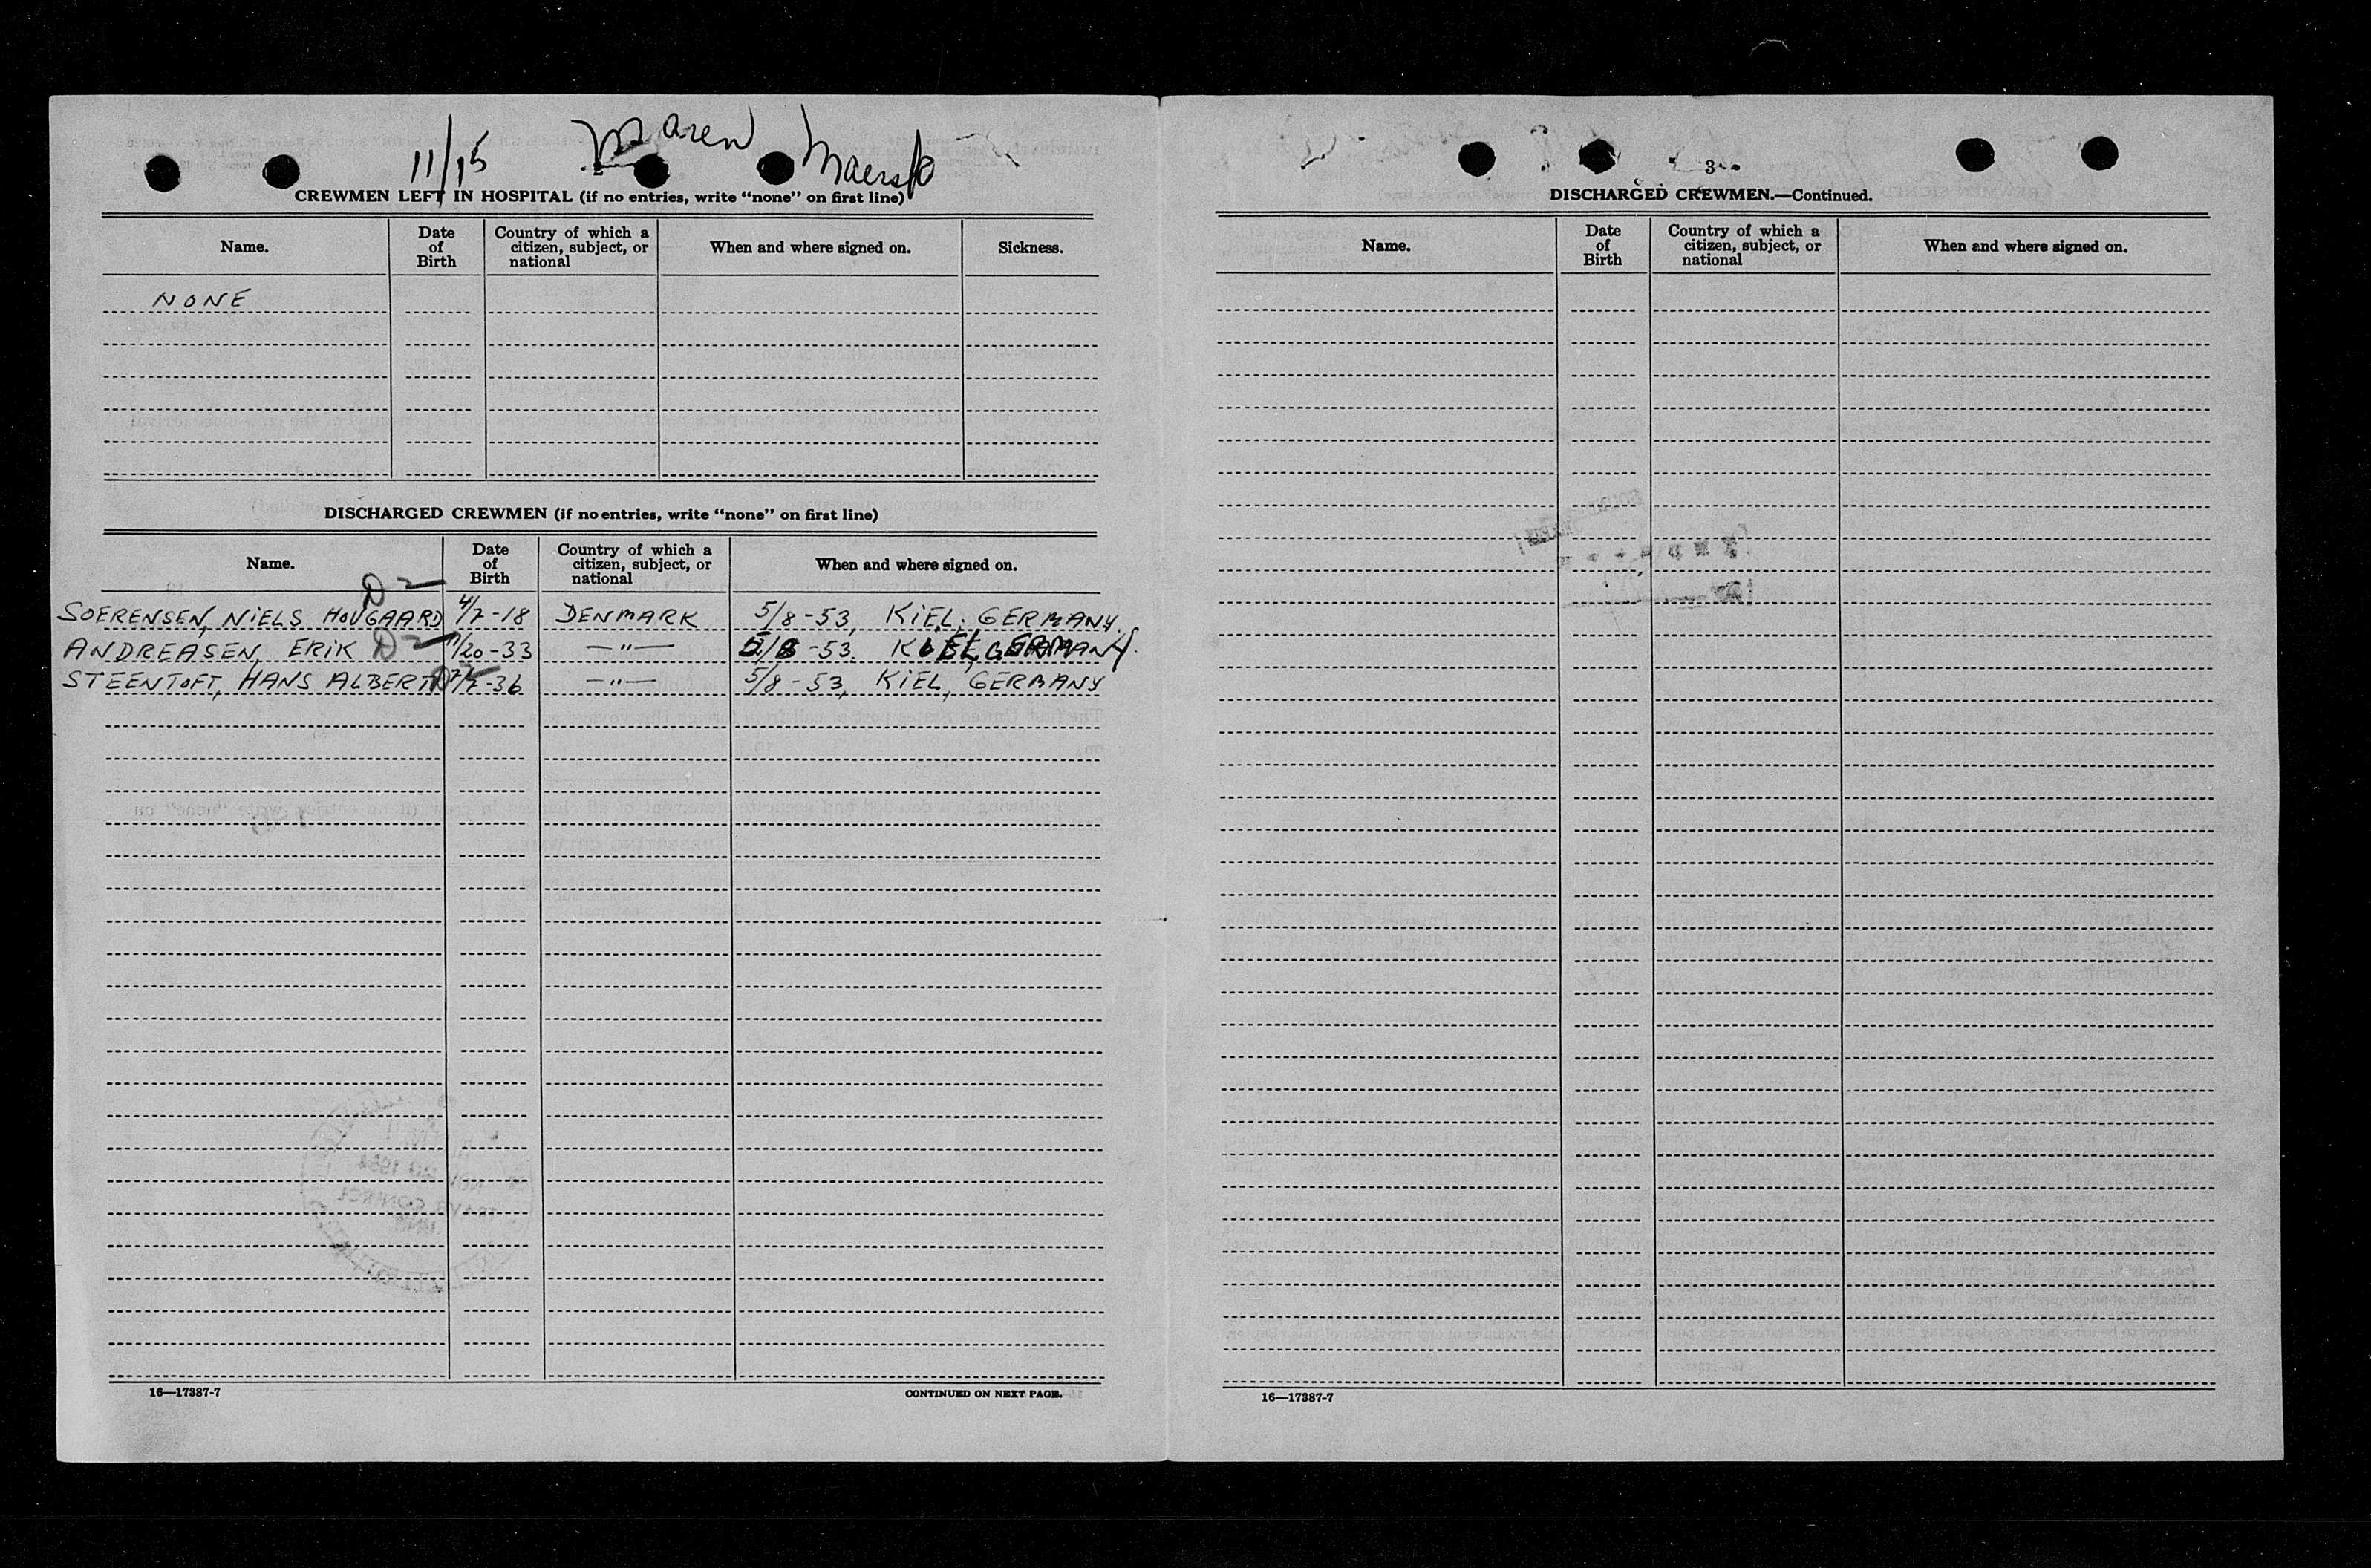 11/15 Maren Maersk
CREWMEN LEFT IN HOSPITAL (if no entries, write “none” on first line)
Name.
Date of Birth
Country of which a citizen, subject, or national
When and where signed on.
Sickness.
NONE
DISCHARGED CREWMEN (if no entries, write “none” on first line)
Name.
Date of Birth
Country of which a citizen, subject, or national
When and where signed on.
D2
SOERENSEN, NIELS HOUGAARD 4/7-18 DENMARK 5/8-53, KIEL, GERMANY.
ANDREASEN, ERIK D2 11/20-33 —"— 5/8-53. KIEL, GERMANY.
STEENTOFT, HANS ALBERT —"— 5/8-53, KIEL, GERMANY
16—17387-7
CONTINUED ON NEXT PAGE.
3
DISCHARGED CREWMEN.—Continued.
Name.
Date of Birth
Country of which a citizen, subject, or national
When and where signed on.
16—17387-7